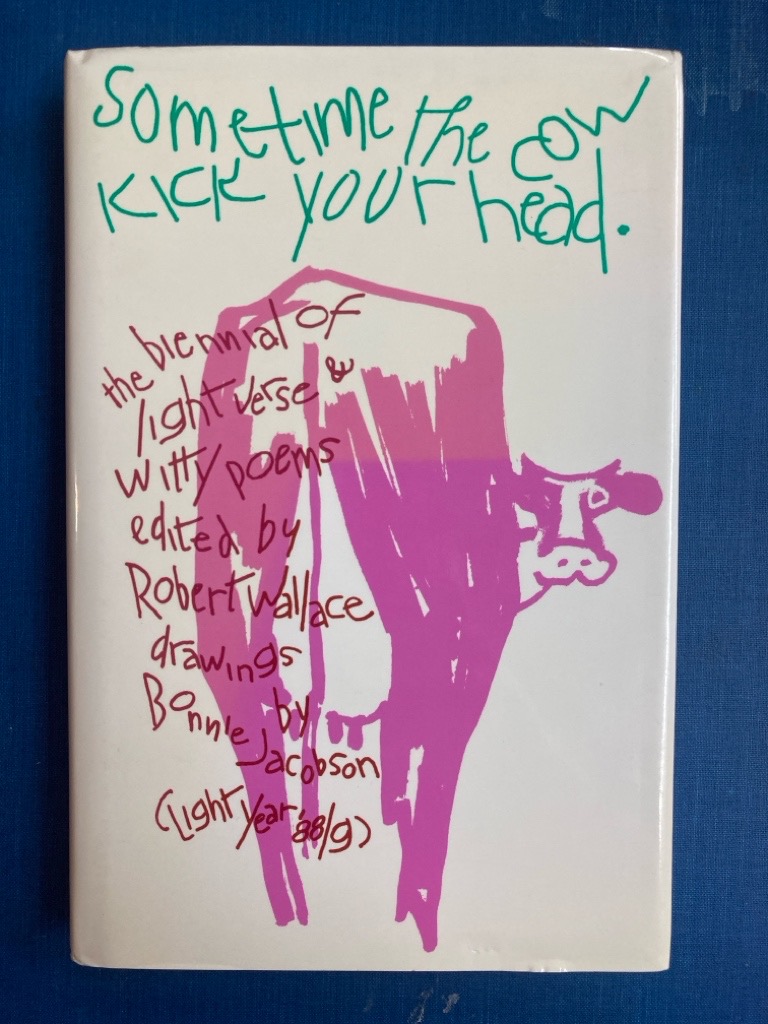 Sometime the cow
kick your head.
the biennial of
light verse &
witty poems
edited by
Robert Wallace
drawings
by
Bonnie
Jacobson
(Light Year '88/9)